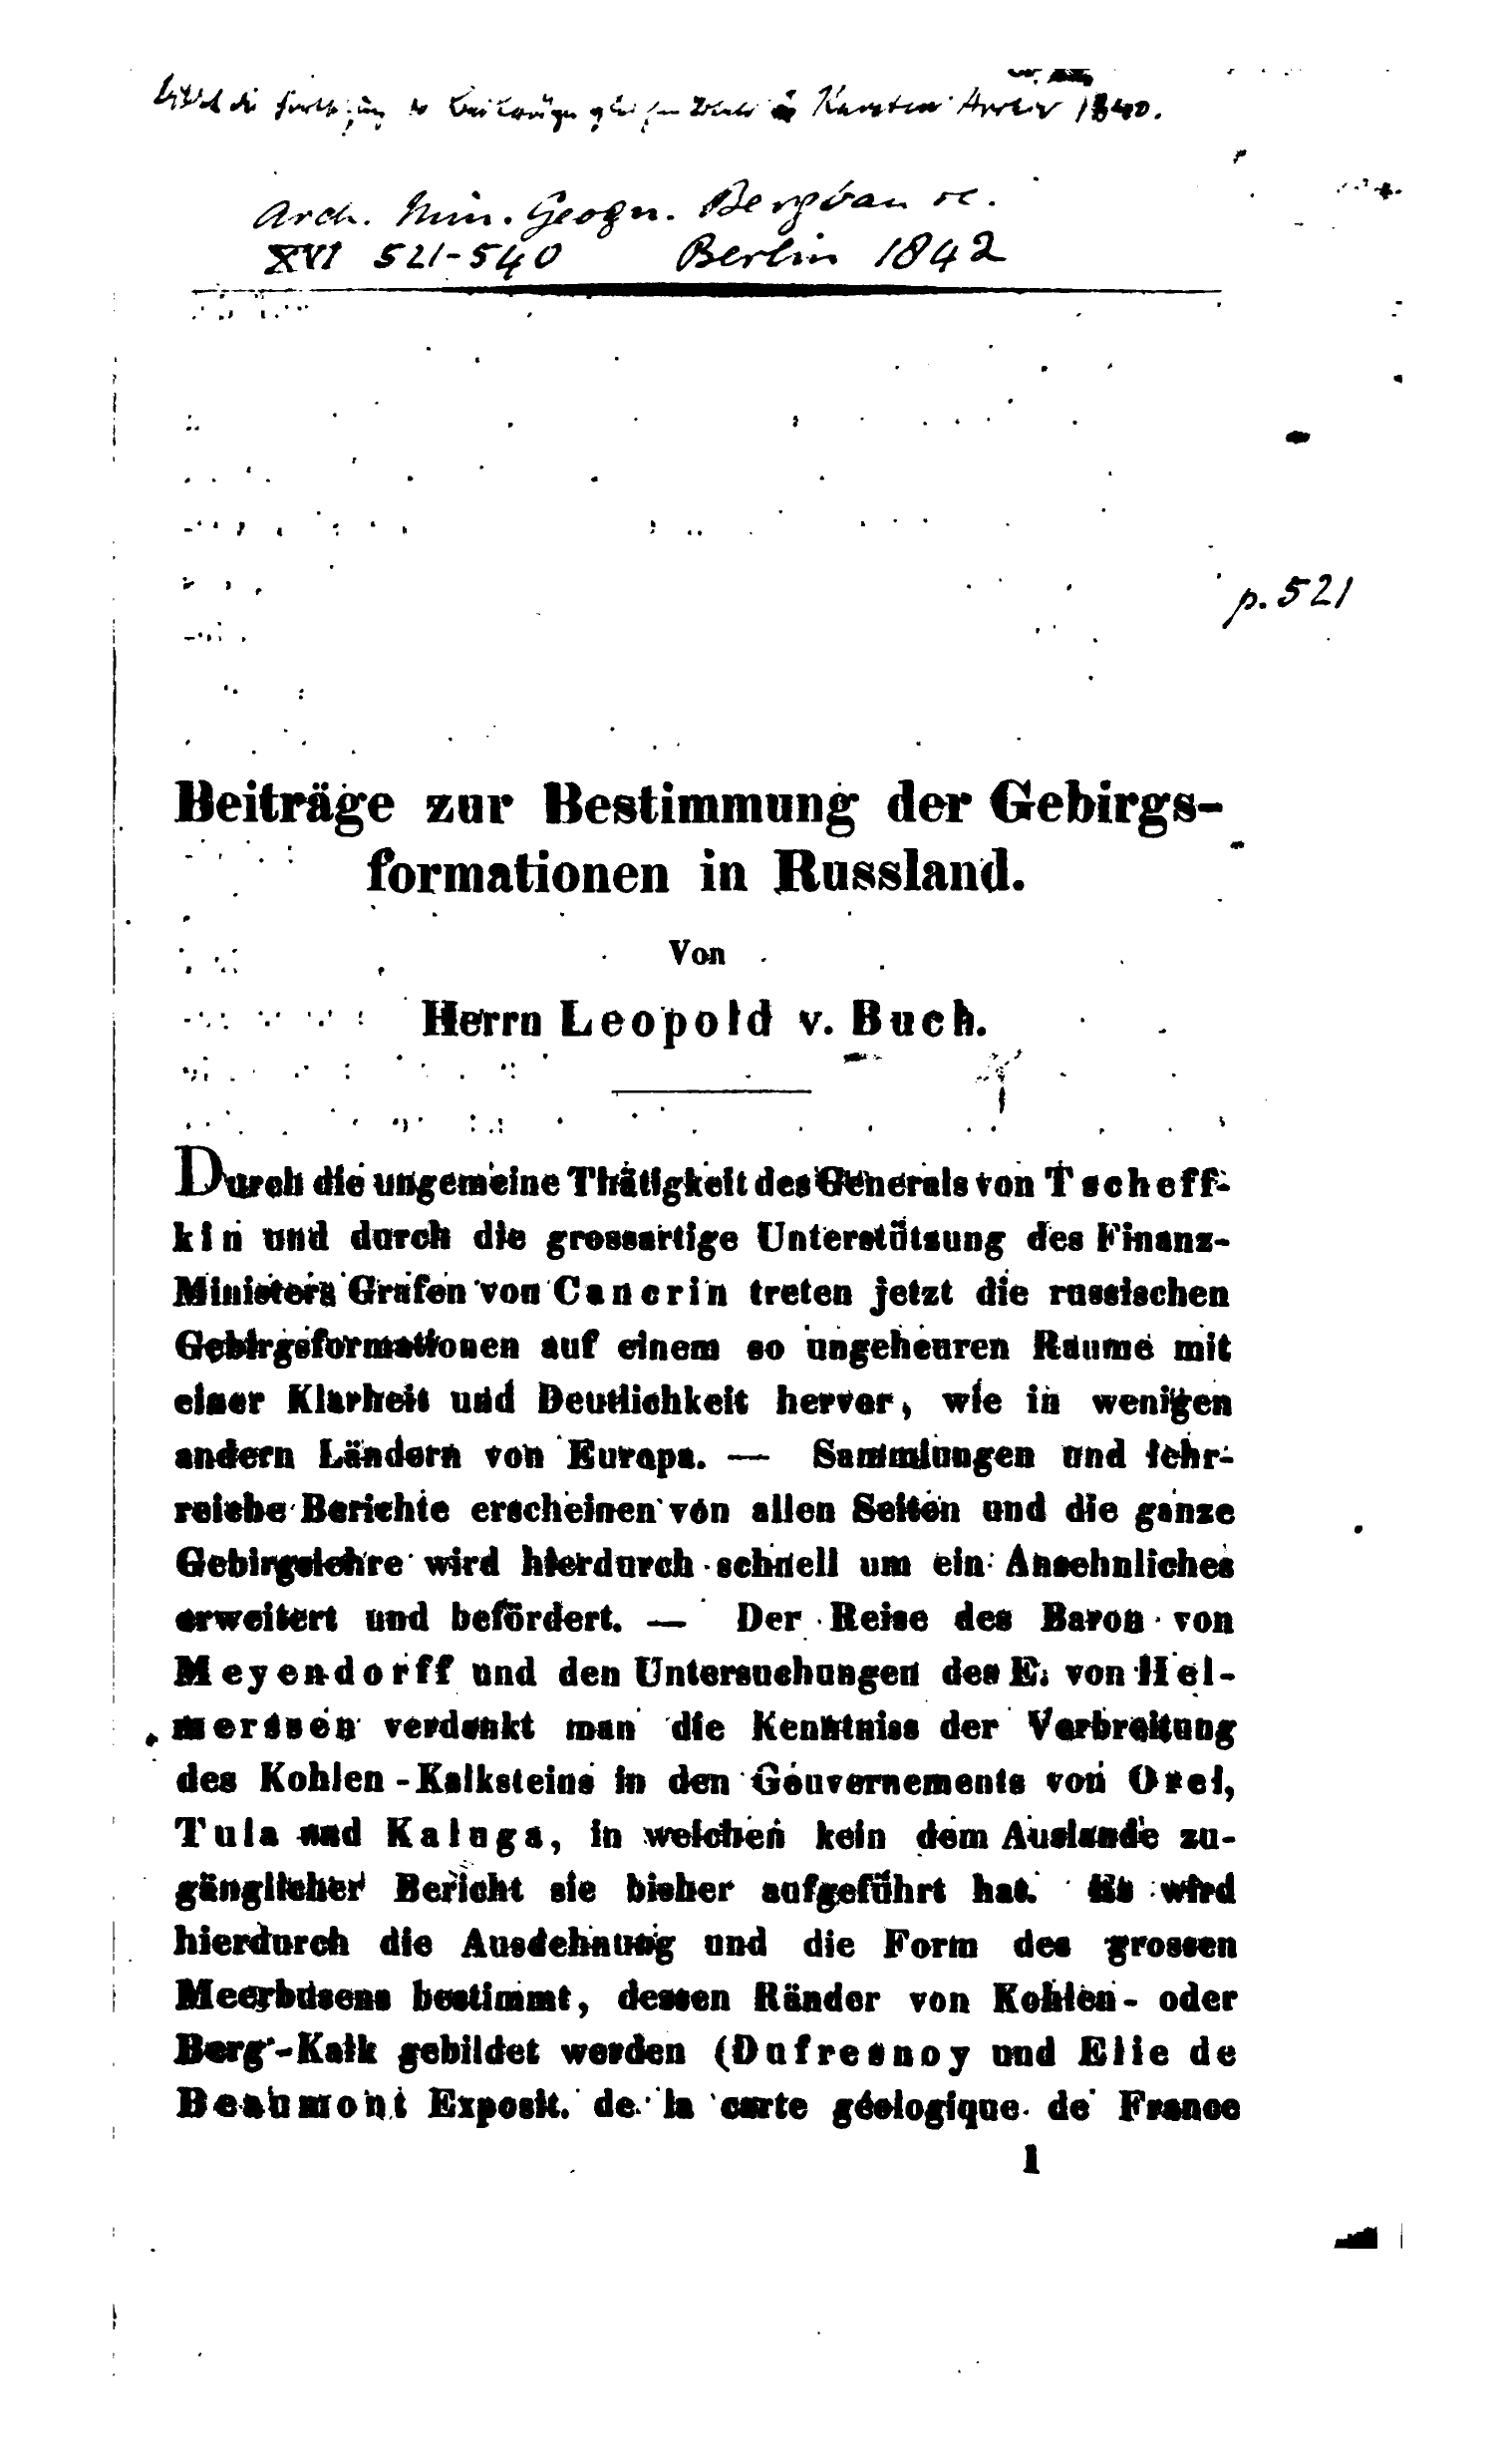 die Karsten Archiv 1840.
Arch. Min. Geogn. Bergbau etc.
XVI 521-540 Berlin 1842
p. 521
Beiträge zur Bestimmung der Gebirgs-
formationen in Russland.
Von
Herrn Leopold v. Buch.
Durch die ungemeine Thätigkeit des Generals von Tscheff-
kin und durch die grossartige Unterstützung des Finanz-
Ministers Grafen von Cancrin treten jetzt die russischen
Gebirgsformationen auf einem so ungeheuren Raume mit
einer Klarheit und Deutlichkeit hervor, wie in wenigen
andern Ländern von Europa. — Sammlungen und lehr-
reiche Berichte erscheinen von allen Seiten und die ganze
Gebirgslehre wird hierdurch schnell um ein Ansehnliches
erweitert und befördert. — Der Reise des Baron von
Meyendorff und den Untersuchungen des E. von Hel-
mersen verdankt man die Kenntniss der Verbreitung
des Kohlen-Kalksteins in den Gouvernements von Orel,
Tula und Kaluga, in welchen kein dem Auslande zu-
gänglicher Bericht sie bisher aufgeführt hat. Es wird
hierdurch die Ausdehnung und die Form des grossen
Meerbusens bestimmt, dessen Ränder von Kohlen- oder
Berg-Kalk gebildet werden (Dufresnoy und Elie de
Beaumont Exposit. de la carte géologique de France
1